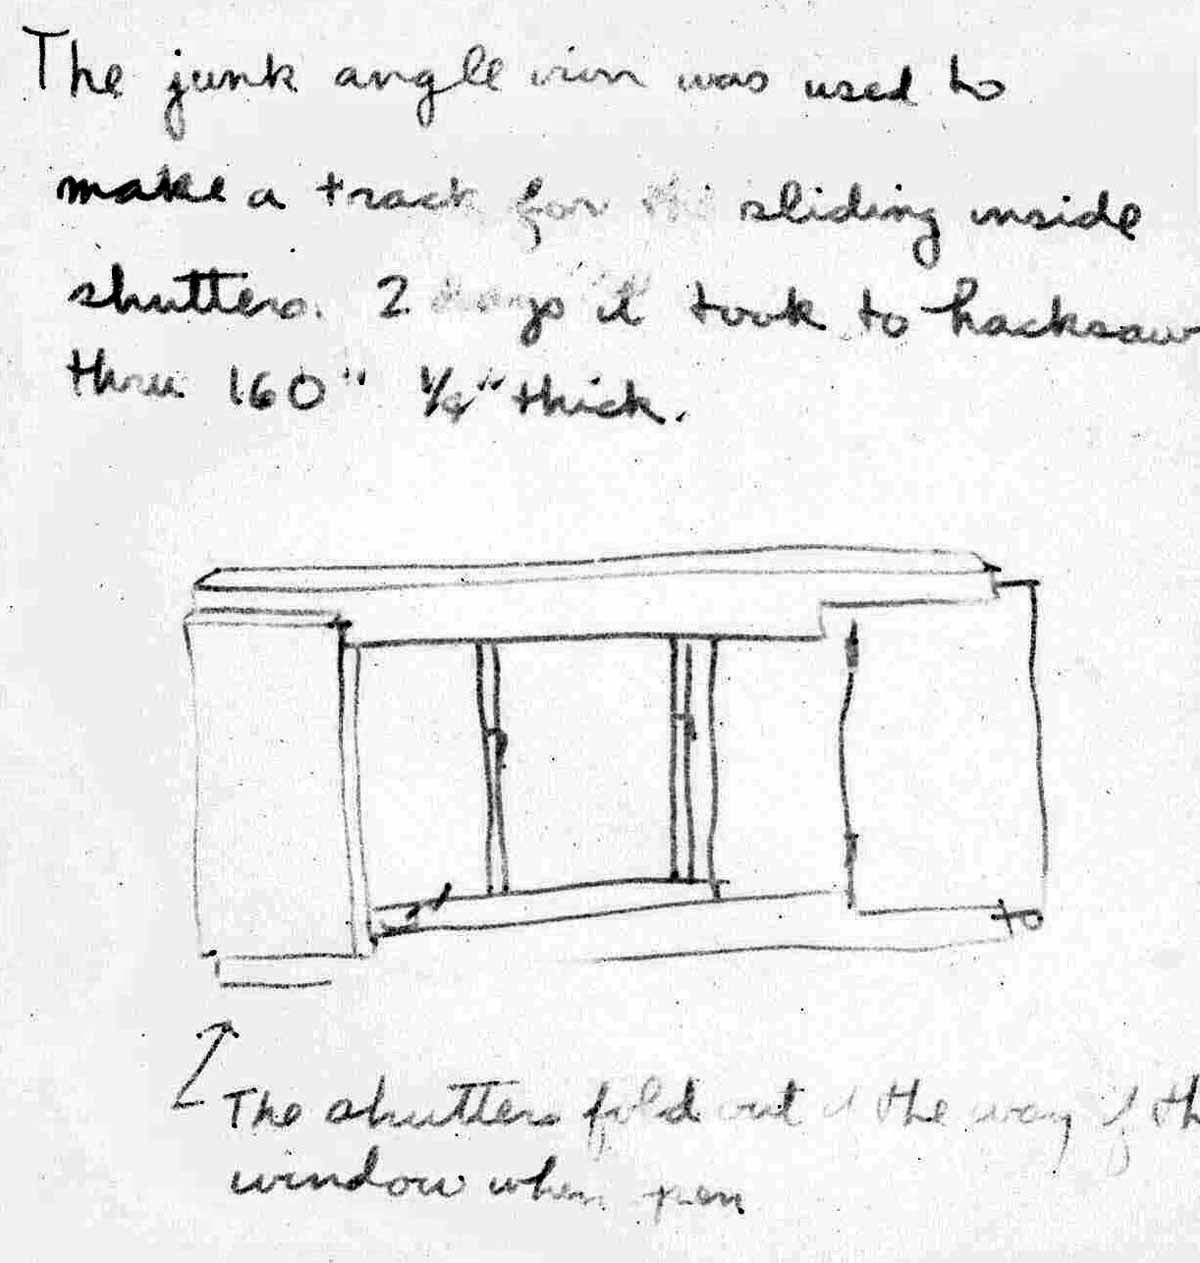 The junk angle iron was used to
make a track for the sliding inside
shutters. 2 days it took to hacksaw
thru 160" 1/4" thick.
The shutters fold out of the way of th
window when open